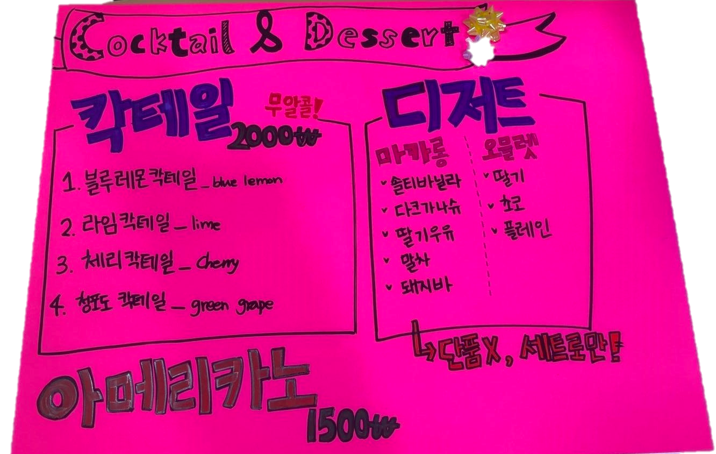 Cocktail & Dessert
칵테일 무알콜!
2000₩
1. 블루레몬칵테일_blue lemon
2. 라임칵테일_lime
3. 체리칵테일_Cherry
4. 청포도 칵테일_green grape
아메리카노
1500₩
디저트
마카롱
솔티바닐라
다크가나슈
딸기우유
말차
돼지바
오믈렛
딸기
초코
플레인
↳단품X, 세트로만!